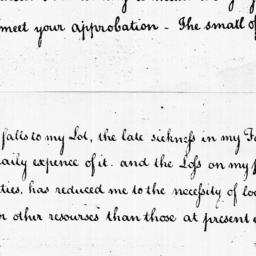 meet your approbation - The small of
falls to my Lot, the late sickneſs in my
daily expence of it. and the Loſs on my
ties, has reduced me to the neceſsity of
or other resourses than those at present